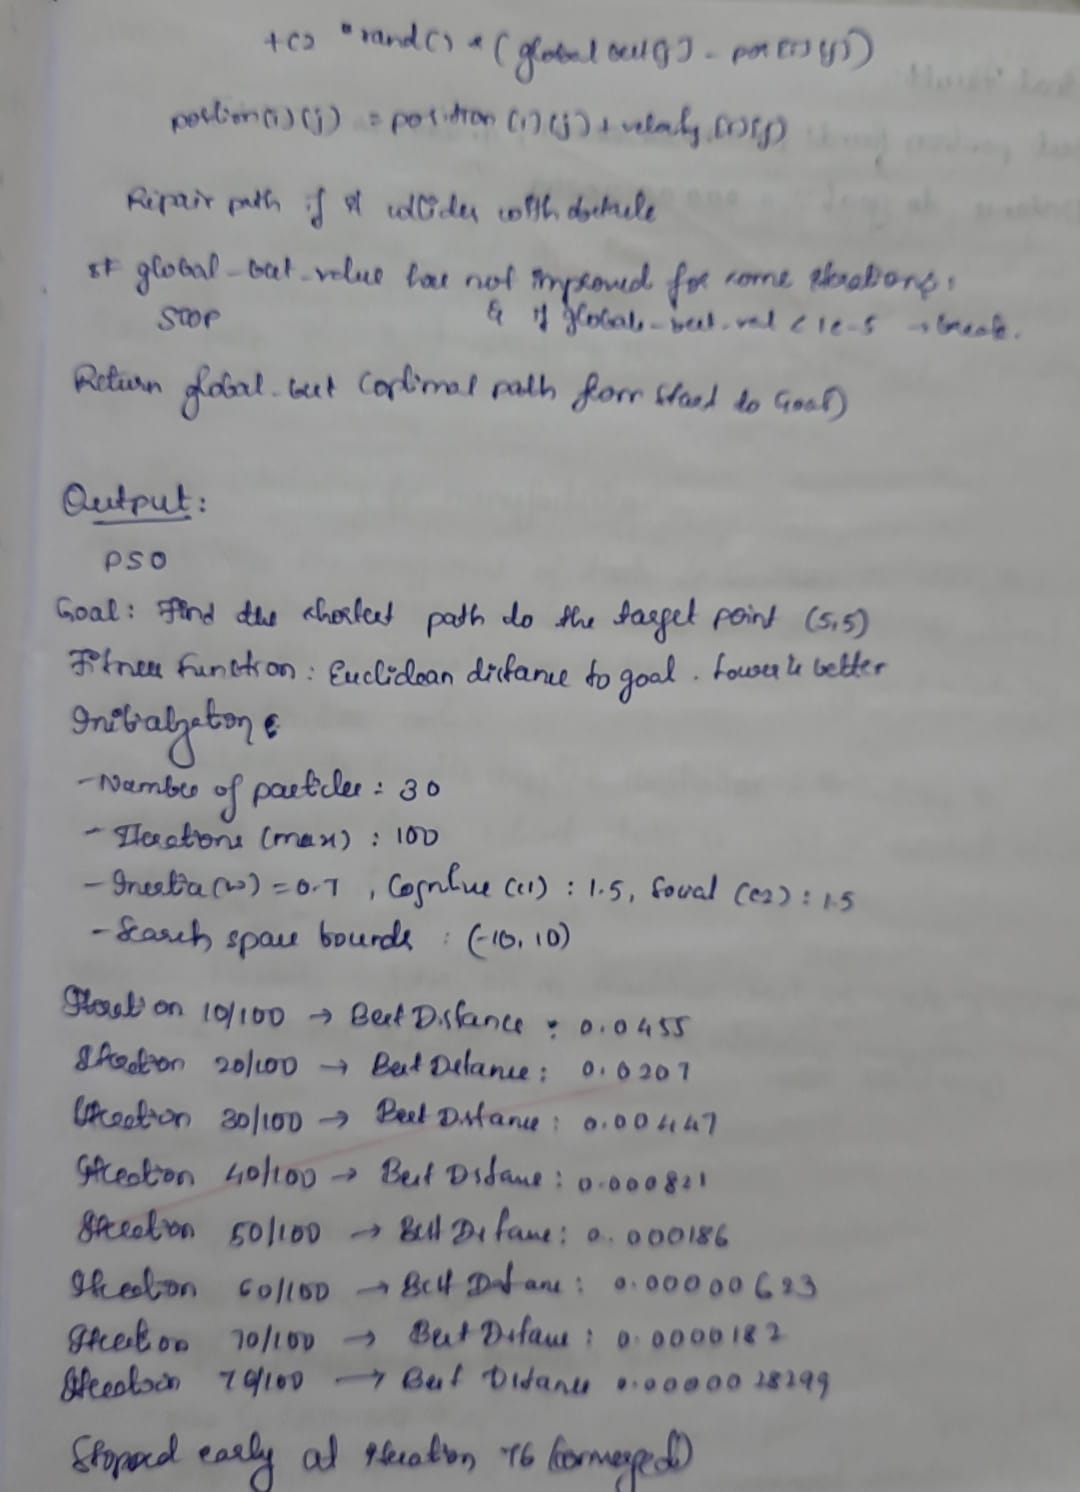 +c2 * rand() * (global best[j] - pos[i][j])
position(i)(j) = position (i)(j) + velocity (i)(j)
Repair path if it collides with obstacle
If global-best-value has not improved for some iterations:
STOP & if global-best-val < 1e-5 → break.
Return global-best (optimal path from Start to Goal)
Output:
PSO
Goal: Find the shortest path to the target point (5,5)
Fitness Function: Euclidean distance to goal. Lower is better
Initialization:
- Number of particles: 30
- Iterations (max): 100
- Inertia (w) = 0.7, Cognitive (c1): 1.5, Social (c2): 1.5
- Search space bounds: (-10, 10)
Iteration 10/100 → Best Distance: 0.0455
Iteration 20/100 → Best Distance: 0.0207
Iteration 30/100 → Best Distance: 0.00447
Iteration 40/100 → Best Distance: 0.000821
Iteration 50/100 → Best Distance: 0.000186
Iteration 60/100 → Best Distance: 0.00000623
Iteration 70/100 → Best Distance: 0.0000182
Iteration 76/100 → Best Distance 0.0000028299
Stopped early at iteration 76 (converged)